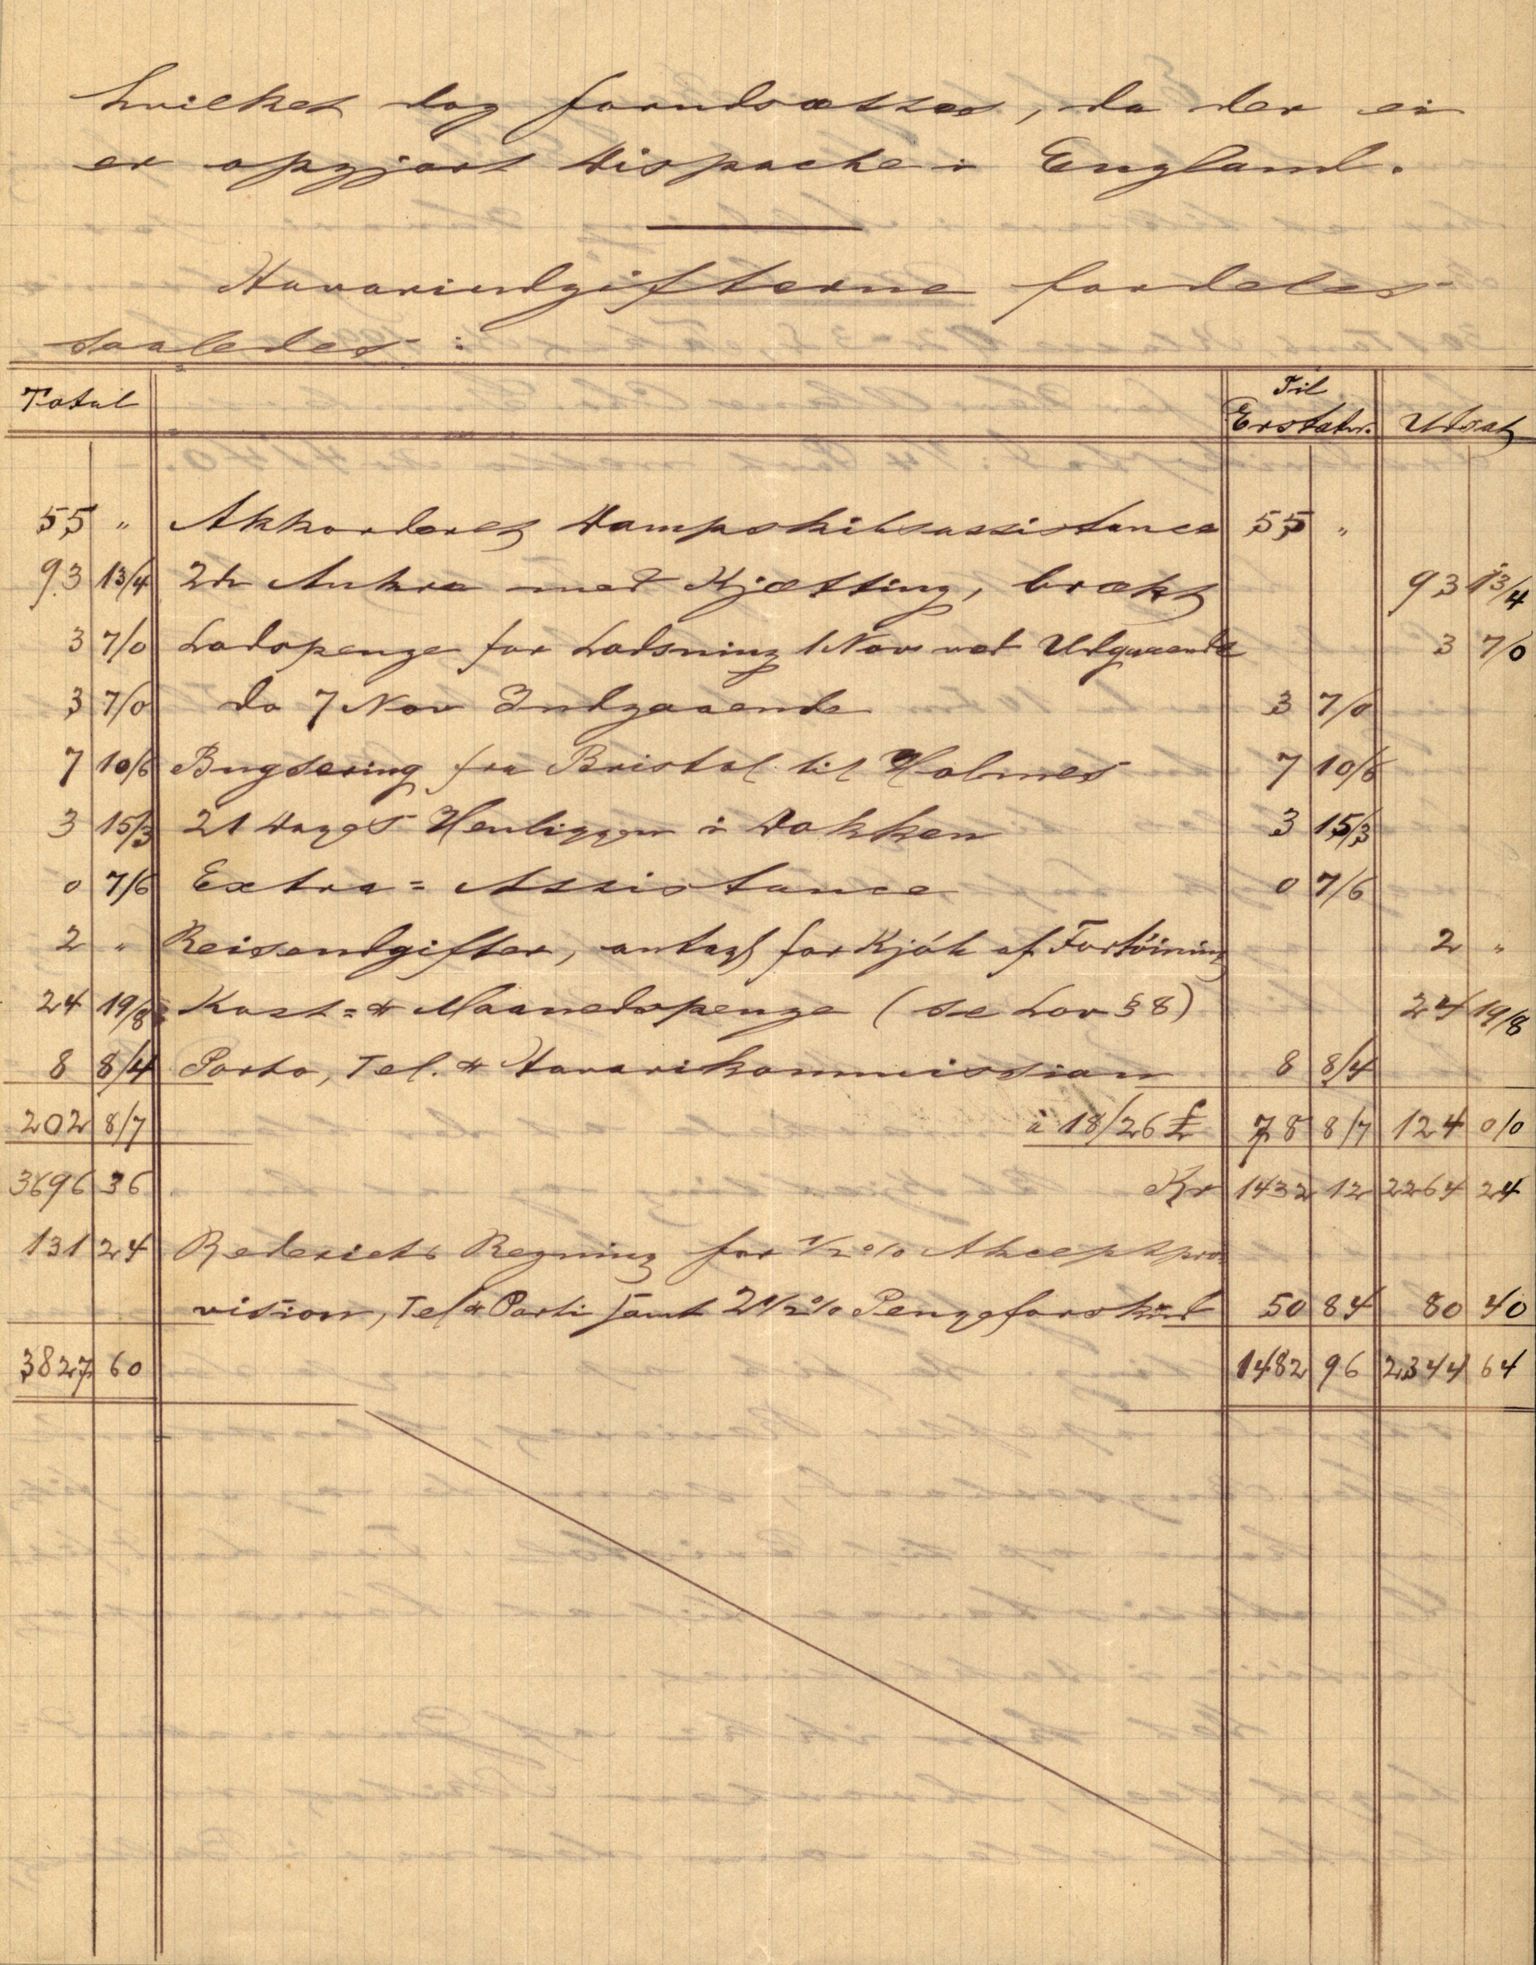 hvilket dog forudsættes, da der ei
er opgjort Dispache i England.
Havariudgifterne fordeles
saaledes:
Total Til Erstatn. Udsat
55 " Akkorderet Dampskibsassistance 55 "
93 13/4 2de Ankre med Kjætting, brækt 93 13/4
3 7/0 Lodspenge for Lodsning 1 Nov ved Udgaaende 3 7/0
3 7/0 do 7 Nov Indgaaende 3 7/0
7 10/6 Bugsering fra Bristol til Holmes 7 10/6
3 15/3 21 Dages Henliggen i Dokken 3 15/3
0 7/6 Extra = Assistance 0 7/6
2 " Reiseudgifter, antagl for Kjøb af Fortöining 2 "
24 19/8 Kost = & Maanedspenge (se Lov § 8) 24 19/8
8 8/4 Porto, Tel. & Havarikommission 8 8/4
202 8/7 à 18/26 £ 78 8/7 124 0/0
3696 36 Kr 1432 12 2264 24
131 24 Rederiets Regning for 1/2 % Akceptpro
vision, Tel & Porti samt 2 1/2 % Pengeforskud 50 84 80 40
3827 60 1482 96 2344 64